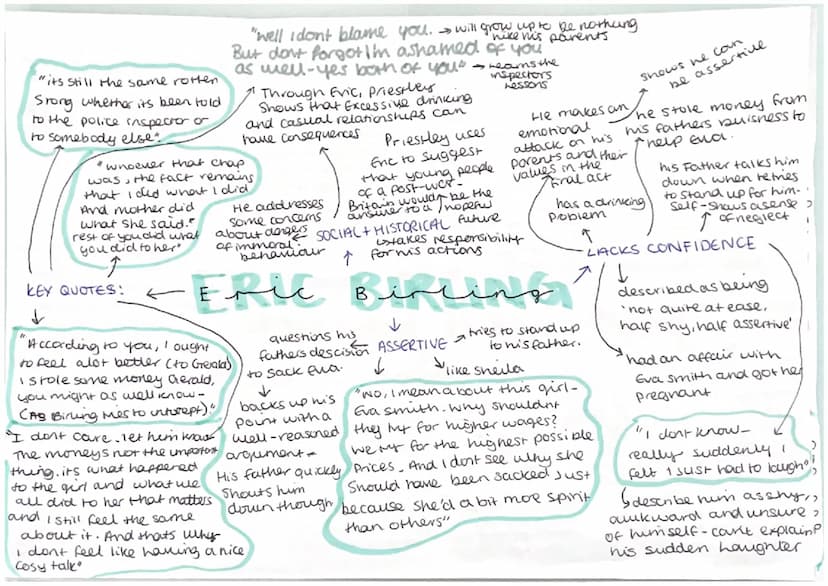 "Well I dont blame you. → will grow up to be nothing
like his parents
But dont forgot I'm ashamed of you
as well - yes both of you" → learns the
inspectors
lessons
"its still the same rotten
story whether its been told
to the police inspector or
to somebody else".
"whoever that chap
was, the fact remains
that I did what I did
And mother did
what she said."
rest of you did what
you did to her"
Through Eric, Priestley
shows that Excessive drinking
and casual relationships can
have consequences
He addresses
some concerns
about dangers
of immoral
behaviour
Priestley uses
Eric to suggest
that young people
of a post-war-
Britain would be the
answer to a hopeful
future
SOCIAL + HISTORICAL
takes responsibility
for his actions
He makes an
emotional
attack on his
parents and their
values in the
final act
shows he can
be assertive
he stole money from
his fathers buisness to
help Eva.
has a drinking
problem
his Father talks him
down when he tries
to stand up for him-
self - shows a sense
of neglect
LACKS CONFIDENCE
described as being
'not quite at ease,
half shy, half assertive'
had an affair with
Eva Smith and got her
pregnant
"I dont know -
really suddenly I
felt I just had to laugh"
describe him as shy,
awkward and unsure
of himself - can't explain
his sudden laughter
ERIC BIRLING
Eric Birling
KEY QUOTES:
"According to you, I ought
to feel alot better (to Gerald)
I stole some money Gerald,
you might as well know-
(As Birling tries to interept)"
"I dont care. let him
The money's not the important
thing. its what happened
to the girl and what we
all did to her that matters
and I still feel the same
about it. And thats why
I dont feel like having a nice
cosy talk"
ASSERTIVE
questions his
fathers descision
to sack Eva.
backs up his
point with a
well-reasoned
argument-
His father quickly
shouts him
down though
tries to stand up
to his father.
like Sheila
"No, I mean about this girl-
Eva Smith. Why shouldnt
they try for higher wages?
We try for the highest possible
prices. And I dont see why she
should have been sacked just
because she'd a bit more spirit
than others"